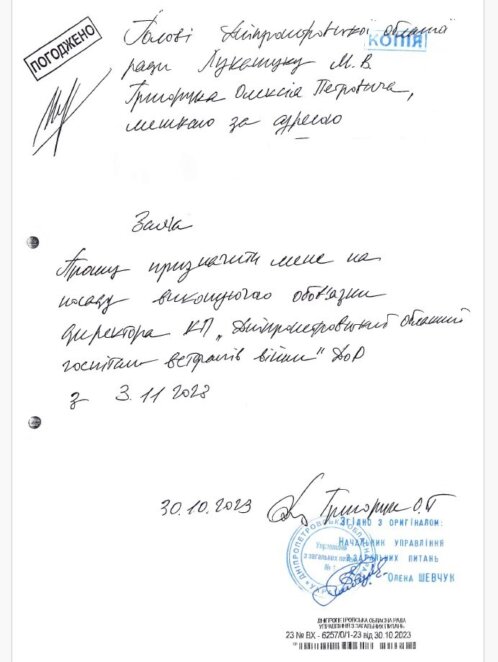 ПОГОДЖЕНО
КОПІЯ
Голові Дніпропетровської обласної
ради Лукашуку М.В.
Григорука Олексія Петровича,
мешкаю за адресою
Заява
Прошу призначити мене на
посаду виконуючого обов'язки
директора КП „Дніпропетровський обласний
госпіталь ветеранів війни" ДОР
з 3.11 2023
30.10.2023 Григорук О.П
Згідно з оригіналом:
Начальник управління
з загальних питань
Олена ШЕВЧУК
ДНІПРОПЕТРОВСЬКА ОБЛАСНА РАДА
УПРАВЛІННЯ З ЗАГАЛЬНИХ ПИТАНЬ
23 № ВХ - 6257/0/1-23 від 30.10.2023